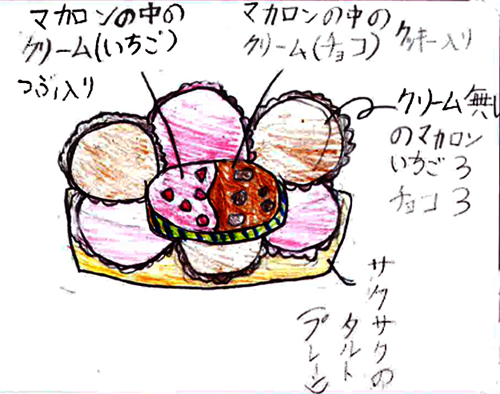 マカロンの中の
クリーム(いちご)
つぶ入り
マカロンの中の
クリーム(チョコ)クッキー入り
クリーム無し
のマカロン
いちご3
チョコ3
サクサクの
タルト
(プレーン)